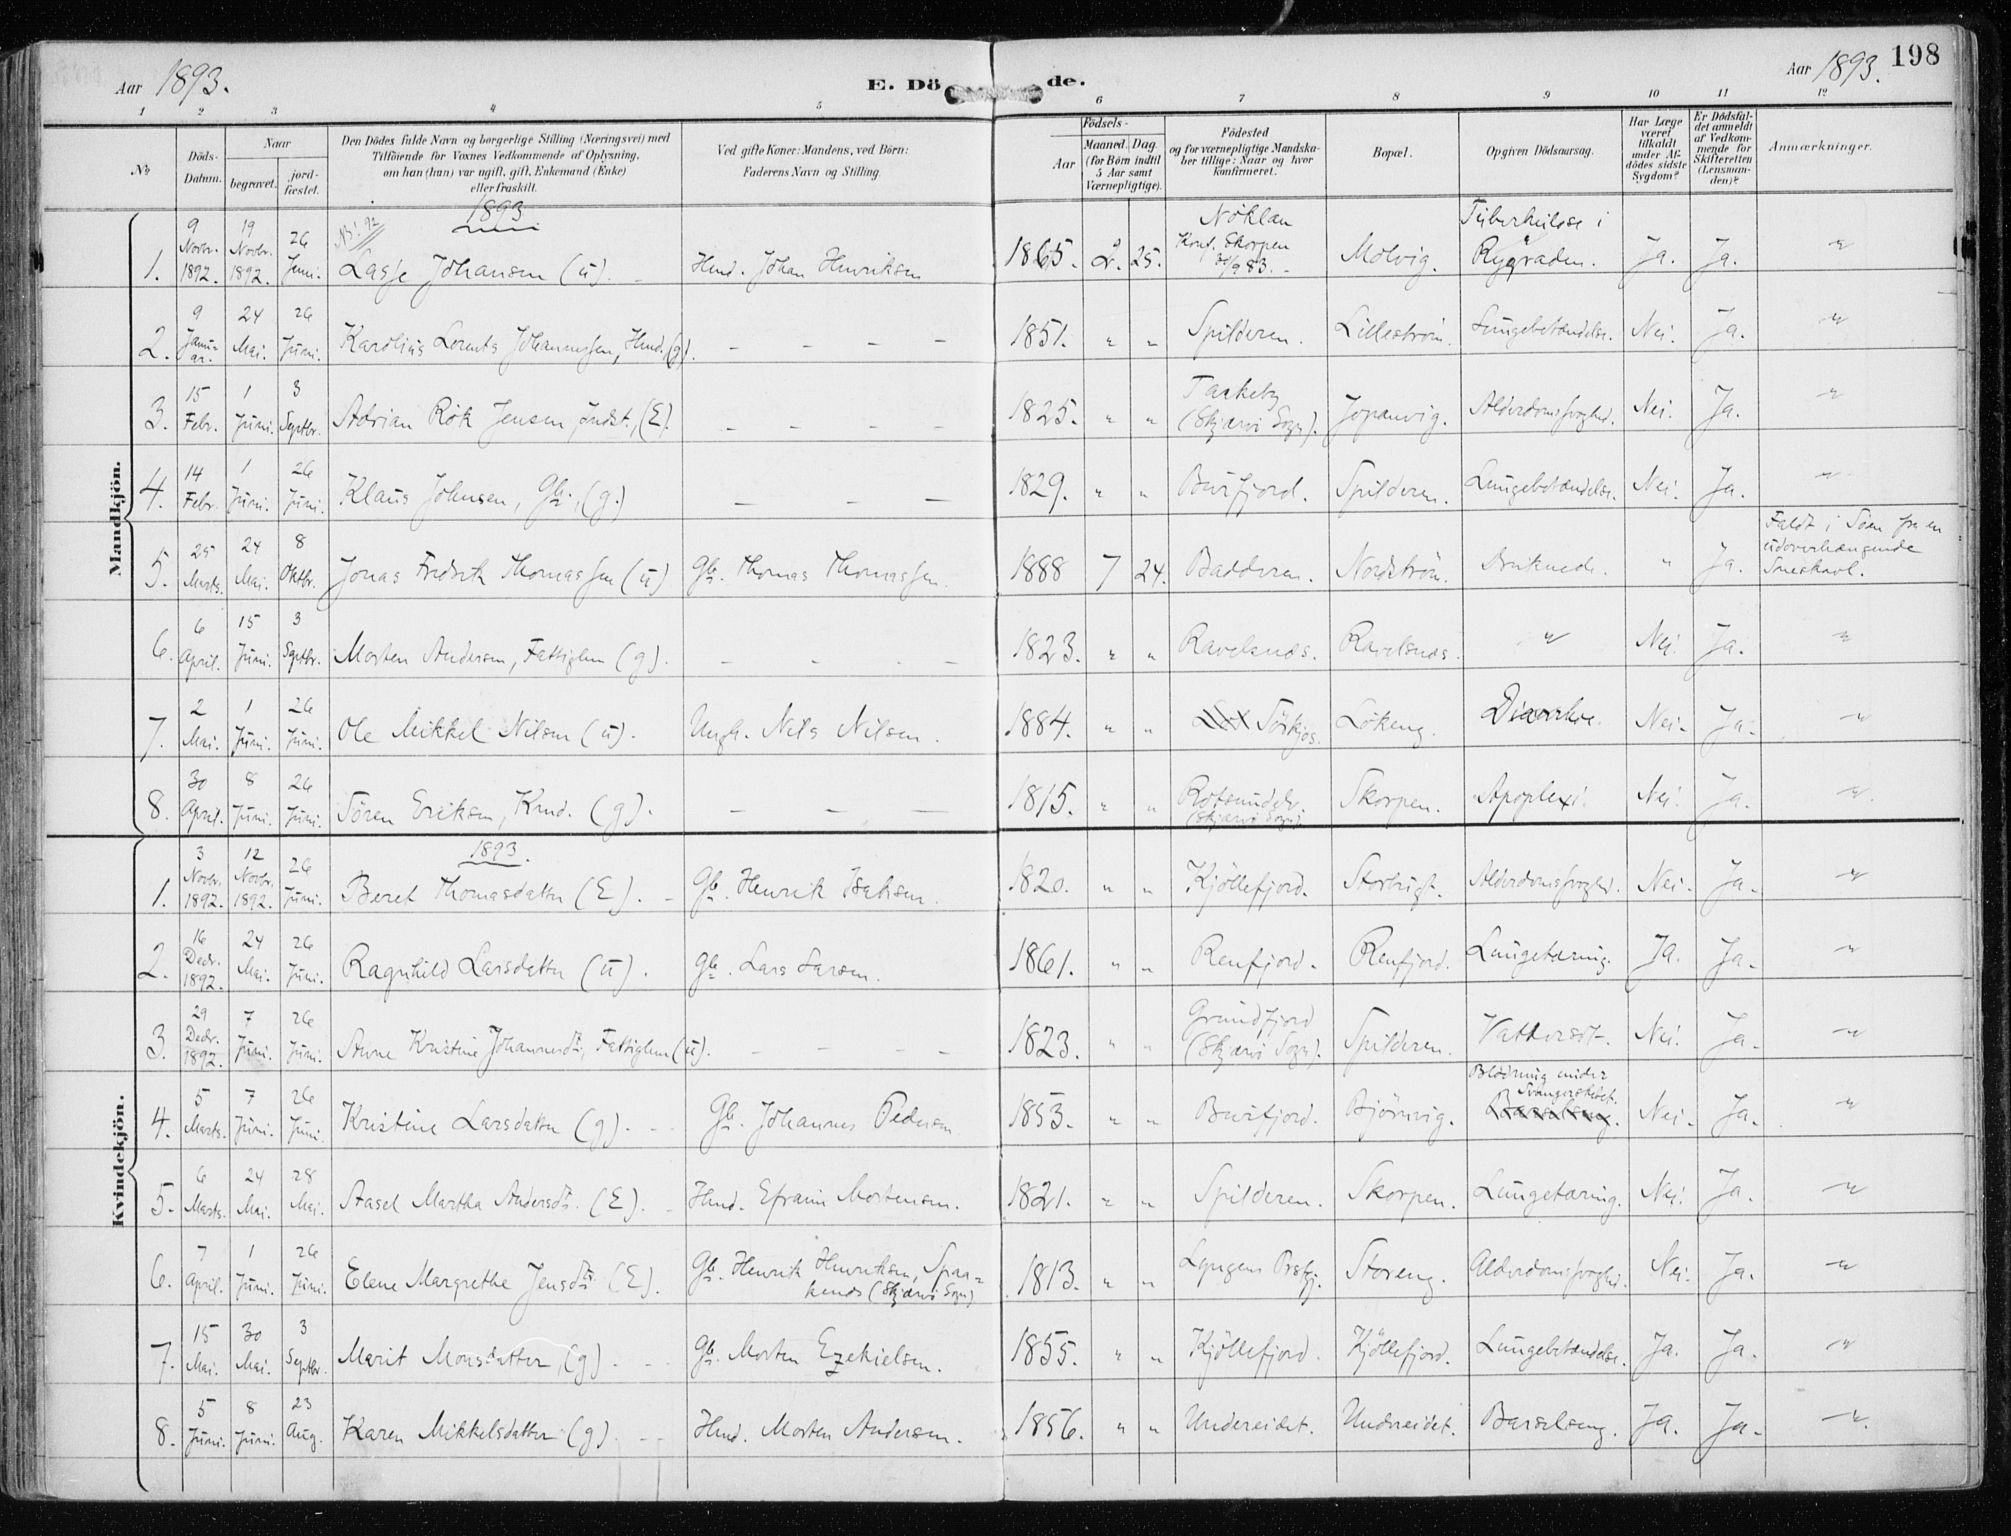 Aar 1893.
E. Dö de.
Aar 1893.
198
1 2 3 4 5 6 7 8 9 10 11 12
No.
Döds-Datum.
Naar
begravet.
jord-fæstet.
Den Dödes fulde Navn og borgerlige Stilling (Næringsvei) med
Tilföiende for Voxnes Vedkommende af Oplysning,
om han (hun) var ugift, gift, Enkemand (Enke)
eller fraskilt.
Ved gifte Koner: Mandens, ved Börn:
Faderens Navn og Stilling.
Födsels-
Aar
Maaned. Dag.
(for Börn indtil
5 Aar samt
Værnepligtige).
Födested
og for værnepligtige Mandska-
ber tillige: Naar og hvor
konfirmeret.
Bopæl.
Opgiven Dödsaarsag.
Har Læge
været
tilkaldt
under Af-
dödes sidste
Sygdom?
Er Dödsfal-
det anmeldt
af Vedkom-
mende for
Skifteretten
(Lensman-
den)?
Anmærkninger.
Mandkjön.
1893
1. 9 Novbr. 1892. 19 Novbr. 1892. 26 Juni. Lasje Johansen (ú). Hmd. Johan Henriksen 1865. 2. 25. Nöklan Konf. Skorpen 30/9 83. Molvig. Tuberkulose i Rygraden. Ja. Ja. "
2. 9 Janu-ar. 24 Mai. 26 Juni. Karolius Lorents Johannessen, Hmd. (g). - - - - 1851. " " Spilderen. Lilleström. Lungebetændelse. Nei. Ja. "
3. 15 Febr. 1 Juni. 3 Septbr. Adrian Rök Jensen Indst., (E). - - - - 1825. " " Taskeby (Skjærvö Sogn). Jopanvig. Alderdomssvaghed. Nei. Ja. "
4. 14 Febr. 1 Juni. 26 Juni. Klaus Johnsen, Gb., (g.) - - - 1829. " " Burfjord. Spilderen. Lungebetændelse. Nei. Ja. "
5. 25 Marts. 24 Mai. 8 Oktbr. Jonas Fredrik Thomassen (ú) Gb. Thomas Thomassen. 1888 7 24. Badderen. Nordström. Druknede. " Ja. Faldt i Söen fra en udoverhængende Sneskavl.
6. 6 April. 15 Juni. 3 Septbr. Morten Andersen, Fattiglem (g). - - - - 1823. " " Ravelsnæs. Ravelsnæs. " Nei. Ja. "
7. 2 Mai. 1 Juni. 26 Juni. Ole Mikkel Nilsen (ú). Ungk. Nils Nilsen. 1884. " " Sörkjos. Lökeng. Diarrhoe. Nei. Ja. "
8. 30 April. 8 Juni. 26 Juni. Sören Eriksen, Kmd. (g). - - - 1815. " " Rotsundelv. (Skjærvö Sogn). Skorpen. Apoplexi. Nei. Ja. "
Kvindekjön.
1893.
1. 3 Novbr. 1892. 12 Novbr. 1892. 26 Juni. Beret Thomasdatter (E). Gb. Henrik Isaksen. 1820. " " Kjöllefjord. Storbugt. Alderdomssvaghed. Nei. Ja. "
2. 16 Decbr. 1892. 24 Mai. 26 Juni. Ragnhild Larsdatter (ú). Gb. Lars Larsen. 1861. " " Renfjord. Renfjord. Lungetæring. Ja. Ja. "
3. 29 Decbr. 1892. 7 Juni. 26 Juni. Anne Kristine Johannesdtr, Fattiglem (ú). - - - - 1823. " " Grundfjord (Skjærvö Sogn). Spilderen. Vattersot. Nei. Ja. "
4. 5 Marts. 7 Juni. 26 Juni. Kristine Larsdatter (g). Gb. Johannes Pedersen. 1853. " " Burfjord. Björnvig. Blödning under Svangerskabet. Barselseng. Nei. Ja. "
5. 6 Marts. 24 Mai. 28 Mai. Aasel Martha Andersdtr. (E). Hmd. Efraim Mortensen. 1821. " " Spilderen. Skorpen. Lungetæring. Nei. Ja. "
6. 7 April. 1 Juni. 26 Juni. Elene Margrethe Jensdtr. (E). Gb. Henrik Henriksen, Spaa-kenes (Skjærvö Sogn) 1813. " " Lyngens Prstgj. Storeng. Alderdomssvaghed. Nei. Ja. "
7. 15 Mai. 30 Mai. 3 Septbr. Marit Monsdatter (g). Gb. Morten Ezekielsen. 1855. " " Kjöllefjord. Kjöllefjord. Lungebetændelse. Ja. Ja. "
8. 5 Juni. 8 Juni. 23 Aug. Karen Mikkelsdatter (g). Hmd. Morten Andersen. 1856. " " Undereidet. Undereidet. Barselseng. Ja. Ja. "